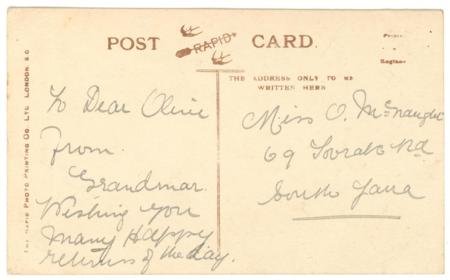 POST CARD.
RAPID
Printed
in
England
THE ADDRESS ONLY TO BE
WRITTEN HERE
THE RAPID PHOTO PRINTING CO. LTD. LONDON. E.C.
To Dear Olive
From
Grandmar.
Wishing you
Many Happy
returns of the day.
Miss O. McNaught
69 Rd
South Yarra